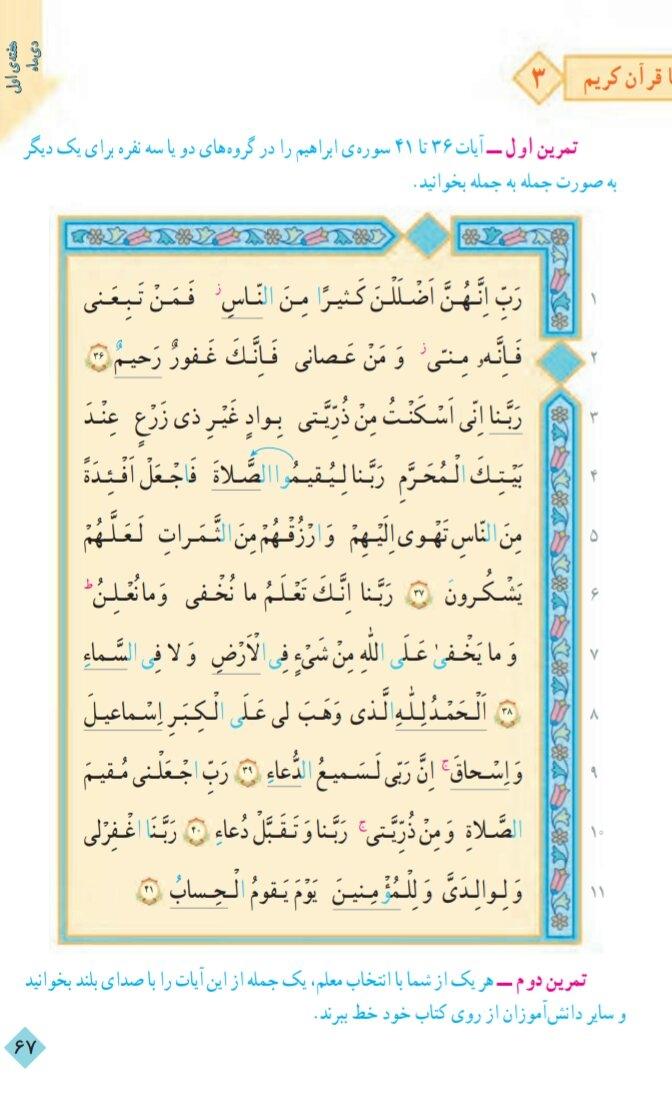 هفته‌ی اول
دی‌ماه
ا قرآن کریم
۳
تمرین اول ــ آیات ۳۶ تا ۴۱ سوره‌ی ابراهیم را در گروه‌های دو یا سه نفره برای یک دیگر
به صورت جمله به جمله بخوانید.
۱ رَبِّ اِنَّهُنَّ اَضْلَلْنَ كَثيرًا مِنَ النّاسِ ز فَمَنْ تَبِعَنى
۲ فَاِنَّهُۥ مِنّى ز وَ مَنْ عَصانى فَاِنَّكَ غَفورٌ رَحيمٌ ۳۶
۳ رَبَّنا اِنّى اَسْكَنْتُ مِنْ ذُرِّيَّتى بِوادٍ غَيْرِ ذى زَرْعٍ عِنْدَ
۴ بَيْتِكَ الْمُحَرَّمِ رَبَّنا لِيُقيمُوا الصَّلاةَ فَاجْعَلْ اَفْئِدَةً
۵ مِنَ النّاسِ تَهْوى اِلَيْهِمْ وَارْزُقْهُمْ مِنَ الثَّمَراتِ لَعَلَّهُمْ
۶ يَشْكُرونَ ۳۷ رَبَّنا اِنَّكَ تَعْلَمُ ما نُخْفى وَمانُعْلِنُ ط
۷ وَ ما يَخْفىٰ عَلَى اللّٰهِ مِنْ شَىْءٍ فِى الْاَرْضِ وَ لا فِى السَّماءِ
۸ ۳۸ اَلْحَمْدُ لِلّٰهِ الَّذى وَهَبَ لى عَلَى الْكِبَرِ اِسْماعيلَ
۹ وَ اِسْحاقَ ج اِنَّ رَبّى لَسَميعُ الدُّعاءِ ۳۹ رَبِّ اجْعَلْنى مُقيمَ
۱۰ الصَّلاةِ وَ مِنْ ذُرِّيَّتى ج رَبَّنا وَ تَقَبَّلْ دُعاءِ ۴۰ رَبَّنَا اغْفِرْلى
۱۱ وَ لِوالِدَىَّ وَ لِلْمُؤْمِنينَ يَوْمَ يَقومُ الْحِسابُ ۴۱
تمرین دوم ــ هر یک از شما با انتخاب معلم، یک جمله از این آیات را با صدای بلند بخوانید
و سایر دانش‌آموزان از روی کتاب خود خط ببرند.
۶۷